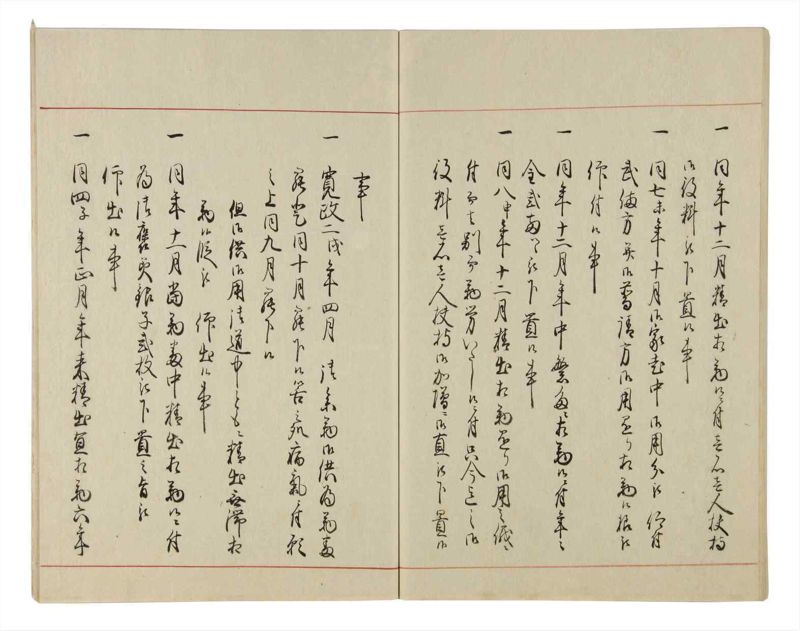 一 同年十二月精出相勤候ニ付壱石壱人扶持
御役料被下置候事
一 同七未年十月御家老中御用分被 仰付
武備方并御普請方御用懸り相勤候様被
仰付候事
一 同年十二月年中繁多ニ相勤候ニ付年々
金弐両ツヽ被下置候事
一 同八申年十二月精出相勤懸り御用之儀
付而者別而勤労いたし候ニ付只今迄之御
役料壱石壱人扶持御加増ニ御直被下置候
事
一 寛政二戌年四月 清勤御供為勤登
罷登同十月罷下候筈之処病気ニ付願
之上同九月罷下候
但御供御用清道中とも精出無滞相
勤候段被 仰出候事
一 同年十二月当勤番中精出相勤候ニ付
為清褒美銀子弐枚被下置之旨被
仰出候事
一 同四子年正月年来精出直相勤六年